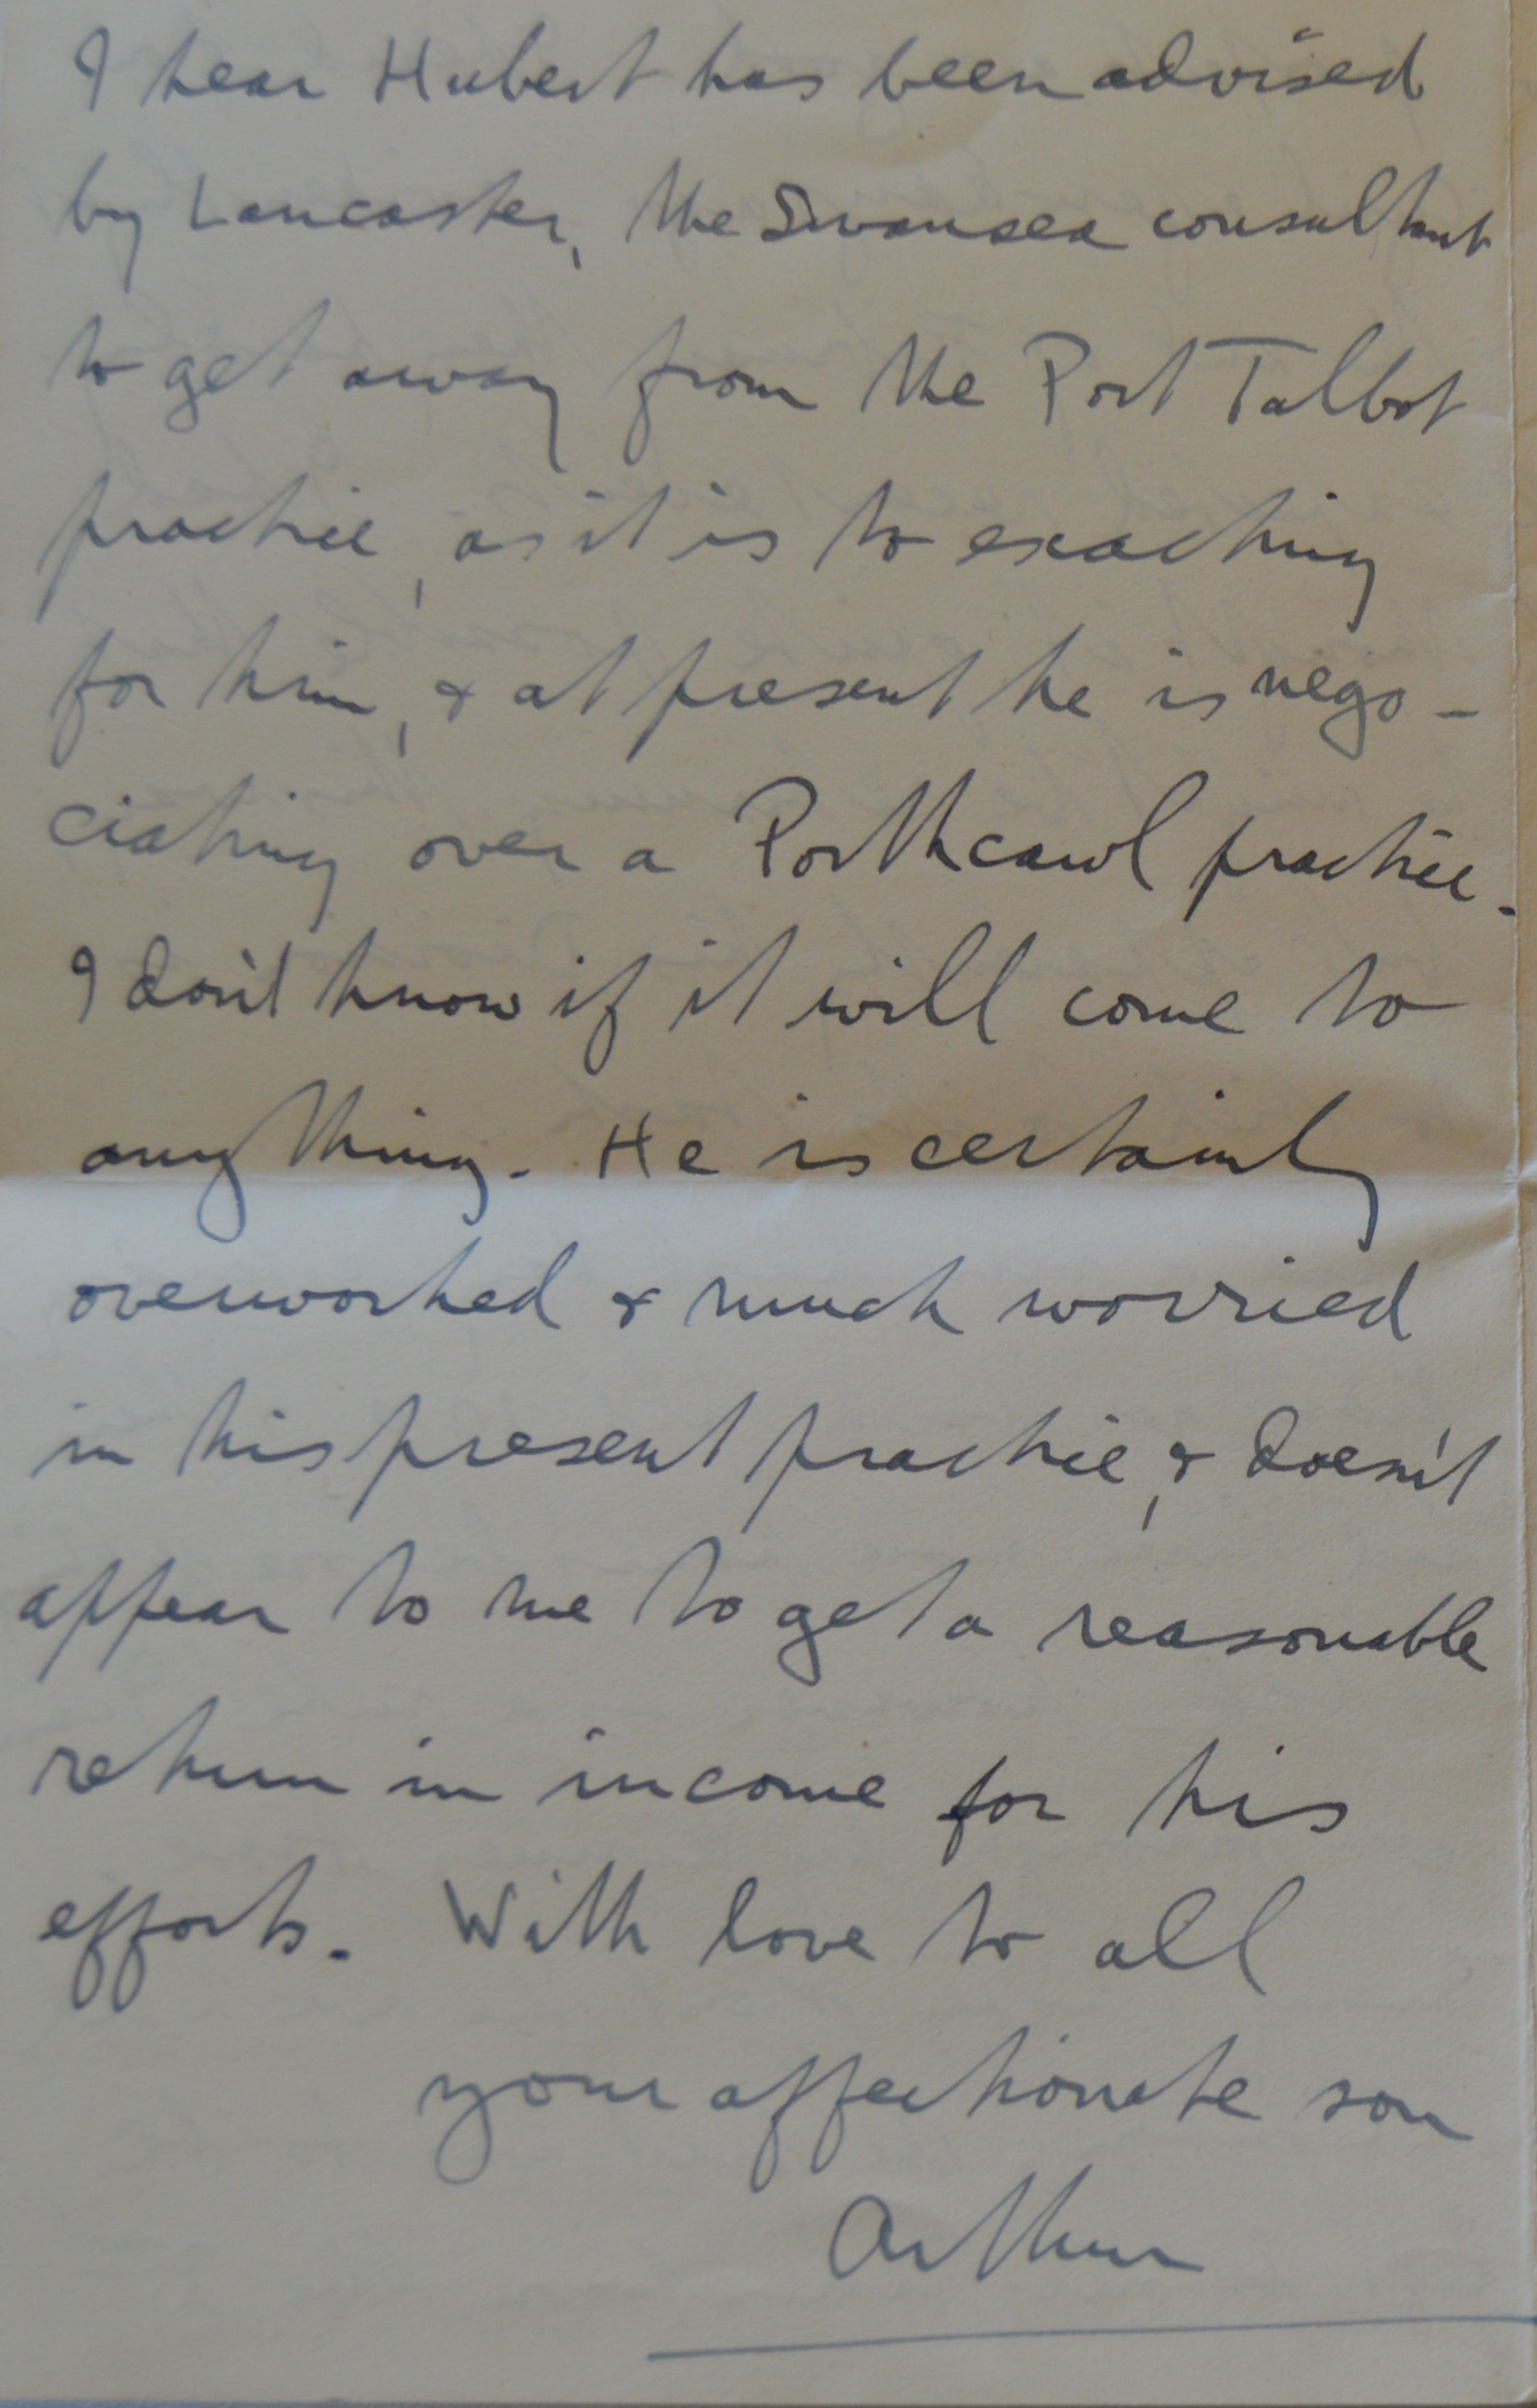 I hear Hubert has been advised
by Lancaster, the Swansea consultant
to get away from the Port Talbot
practice, as it is to exacting
for him, & at present he is nego-
ciating over a Porthcawl practice.
I don't know if it will come to
anything. He is certainly
overworked & much worried
in his present practice, & doesn't
appear to me to get a reasonable
return in income for his
efforts. With love to all
your affectionate son
Arthur